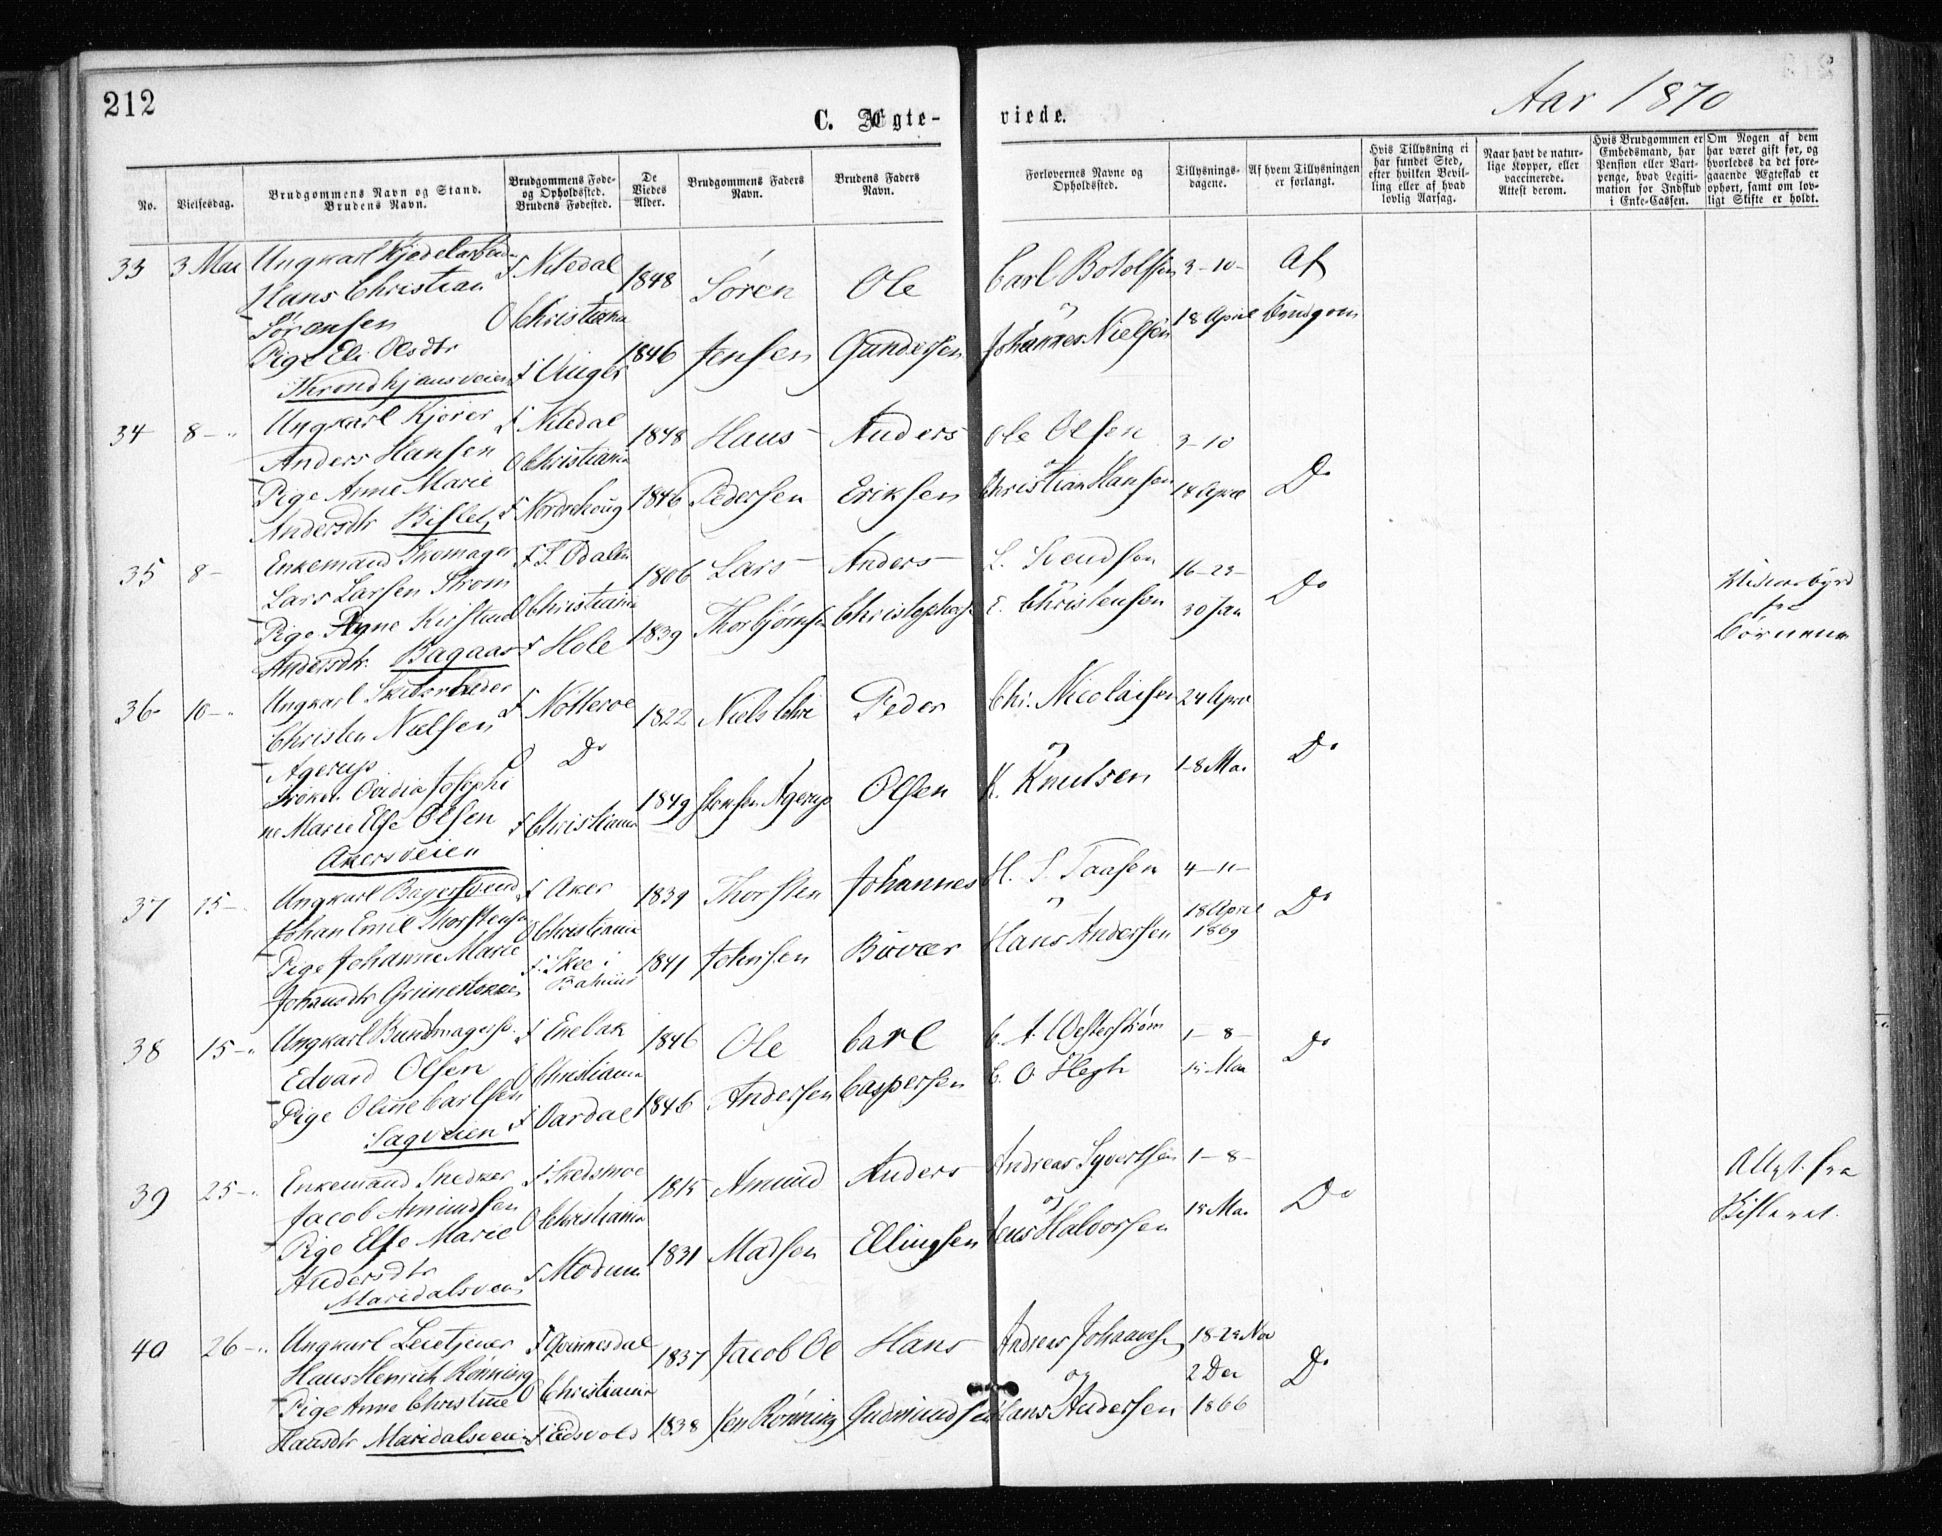 212
C. Ægte-
viede.
Aar 1870
No.
Vielsesdag.
Brudgommens Navn og Stand.
Brudens Navn.
Brudgommens Føde-
og Opholdssted.
Brudens Fødested.
De
Viedes
Alder.
Brudgommens Faders
Navn.
Brudens Faders
Navn.
Forlovernes Navne og
Opholdssted.
Tillysnings-
dagene.
Af hvem Tillysningen
er forlangt.
Hvis Tillysning ei
har fundet Sted,
efter hvilken Bevil-
ling eller af hvad
lovlig Aarsag.
Naar havt de natur-
lige Kopper, eller
vaccinerede.
Attest derom.
Hvis Brudgommen er
Embedsmand, har
Pension eller Vart-
penge, hvad Legiti-
mation for Indskud
i Enke-Cassen.
Om Nogen af dem
har været gift før, og
hvorledes da det fore-
gaaende Ægteskab er
ophørt, samt om lov-
ligt Skifte er holdt.
33 3 Mai Ungkarl
Hans Christian
Sørensen
Pige Eli Olsdtr
Throndhjemsveien
F Nitedal
O Christiania
F Vinger
1848
1846
Søren
Jensen
Ole
Gundersen
Carl Botolfsen
og
Johannes Nielsen
3-10-
18 April
Af
Brudgom
34 8-"
Ungkarl Kjører
Anders Hansen
Pige Anne Marie
Andersdtr Bislet
F Nitedal
O Christiania
F Norderhoug
1848
1846
Hans
Pedersen
Anders
Eriksen
Ole Olsen
og
Christian Hansen
3-10
18 April
Do
35 8-
Enkemand Skomager
Lars Larsen Strøm
Pige Agne Kirstine
Andersdtr. Bagaas
F S. Odalen
O Christiania
F Hole
1806
1839
Lars
Thorbjørnsen
Anders
Christophersen
L. Svendsen
og
E. Christensen
16-23-
30 Jan
Do
fra
Børnene
36 10-"
Ungkarl
Christen Nielsen
Agerup
Frøken Ovidia Josephi
ne Marie Else Olsen
Akersveien
F Nøtterøe
O Do
F Christiania
1822
1849
Niels
Agerup
Peder
Olsen
Chr. Nicolaisen
og
K. Knutsen
24 April
1-8 Mai
Do
37 15-"
Ungkarl Bagersvend
Johan Emil Thorstensen
Pige Johanne Marie
Johansdtr Grünerløkken
F Aker
O Christiania
F. Skee i
1839
1841
Thorsten
Johnsen
Johannes
H. S. Taasen
og
Hans Andersen
4-11-
18 April
1869
Do
38 15-"
Ungkarl Bundtmagersv.
Edvard Olsen
Pige Oline Carlsen
Sagveien
F Enebak
O Christiania
F Vardal
1846
1846
Ole
Andersen
Carl
Caspersen
C. A. Westerstrøm
og
C. O. Hegh
1-8-
15 Mai
Do
39 25-"
Enkemand Snedker
Jacob Amundsen
Pige Else Marie
Andersdtr
Maridalsveien
F Skedsmoe
O Christiania
F Modum
1815
1831
Amund
Madsen
Anders
Ellingsen
Andreas Syvertsen
og
Jens Halvorsen
1-8-
15 Mai
Do
Attest. fra
Skifteret.
40 26-"
Ungkarl Leietjener
Hans Henrich Rønning
Pige Anne Christine
Hansdtr Maridalsveien
F Qvinnesdal
O Christiania
F Eidsvold
1837
1838
Jacob Ol
sen Rønning
Hans
Gudmundsen
Andreas Johannesen
og
Hans Andersen
18-25 Nov
2 Dec
1866
Do